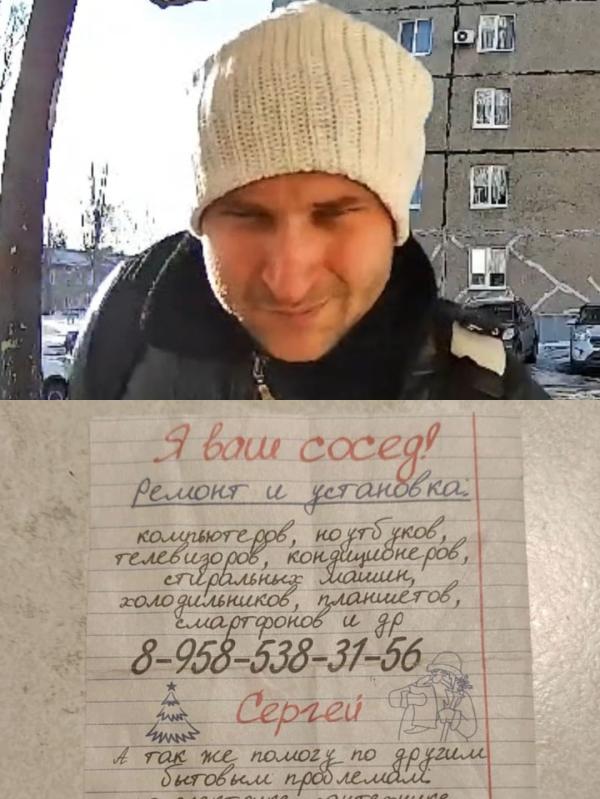 Я ваш сосед!
Ремонт и установка:
компьютеров, ноутбуков,
телевизоров, кондиционеров,
стиральных машин,
холодильников, планшетов,
смартфонов и др
8-958-538-31-56
Сергей
А так же помогу по другим
бытовым проблемам.